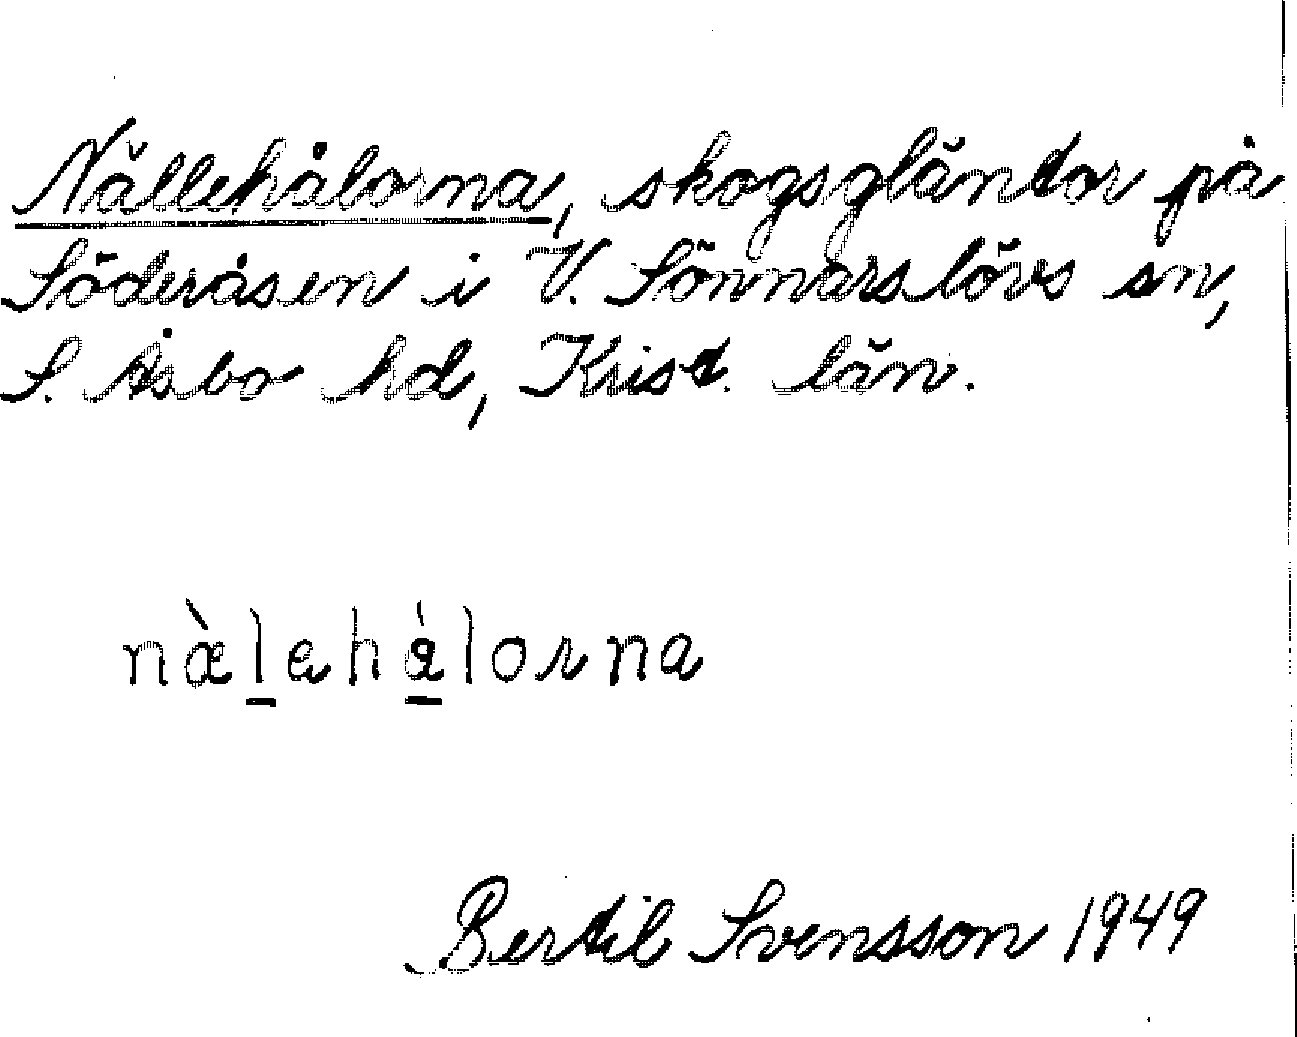 Nällehålorna, skogsgläntor på
Söderåsen i V. Sönnarslövs sn,
S. Åsbo hd, Krist. län.
næ̀l̲ehá̲lorna
Bertil Svensson 1949